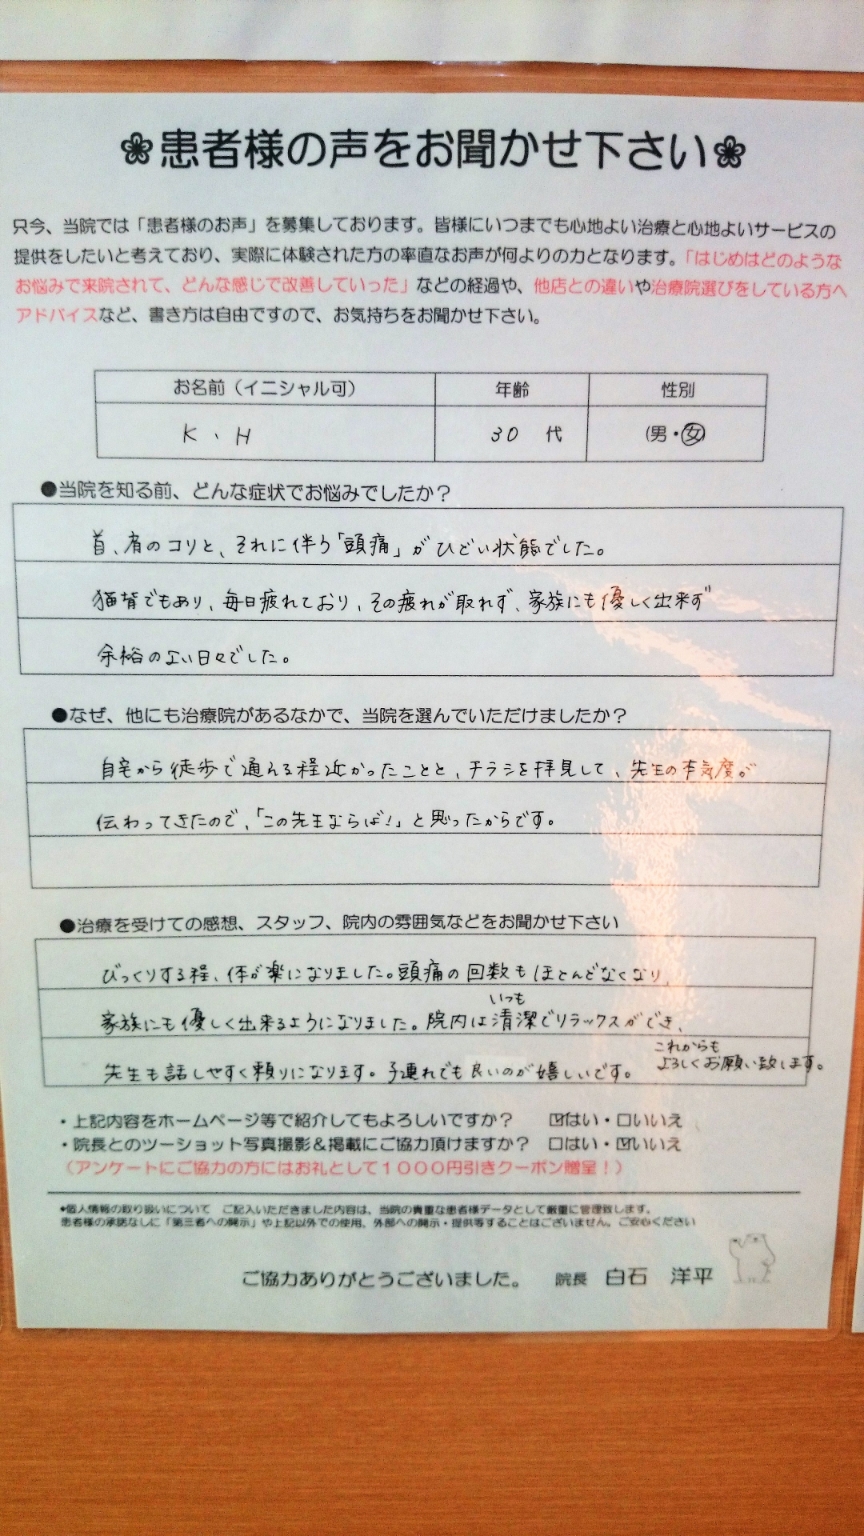 ❀患者様の声をお聞かせ下さい❀
只今、当院では「患者様のお声」を募集しております。皆様にいつまでも心地よい治療と心地よいサービスの
提供をしたいと考えており、実際に体験された方の率直なお声が何よりの力となります。「はじめはどのような
お悩みで来院されて、どんな感じで改善していった」などの経過や、他店との違いや治療院選びをしている方へ
アドバイスなど、書き方は自由ですので、お気持ちをお聞かせ下さい。
お名前（イニシャル可） 年齢 性別
K、H 30 代 (男・女)
●当院を知る前、どんな症状でお悩みでしたか？
首、肩のコリと、それに伴う「頭痛」がひどい状態でした。
猫背でもあり、毎日疲れており、その疲れが取れず、家族にも優しく出来ず
余裕のない日々でした。
●なぜ、他にも治療院があるなかで、当院を選んでいただけましたか？
自宅から徒歩で通える程近かったことと、チラシを拝見して、先生の本気度が
伝わってきたので、「この先生ならば！」と思ったからです。
●治療を受けての感想、スタッフ、院内の雰囲気などをお聞かせ下さい
びっくりする程、体が楽になりました。頭痛の回数もほとんどなくなり、
家族にも優しく出来るようになりました。院内はいつも清潔でリラックスができ、
先生も話しやすく頼りになります。子連れでも良いのが嬉しいです。これからもよろしくお願い致します。
・上記内容をホームページ等で紹介してもよろしいですか？ ☑はい・□いいえ
・院長とのツーショット写真撮影＆掲載にご協力頂けますか？ □はい・☑いいえ
（アンケートにご協力の方にはお礼として１０００円引きクーポン贈呈！）
●個人情報の取り扱いについて ご記入いただきました内容は、当院の貴重な患者様データとして厳重に管理致します。
患者様の承諾なしに「第三者への開示」や上記以外での使用、外部への開示・提供等することはございません。ご安心ください
ご協力ありがとうございました。 院長 白石 洋平